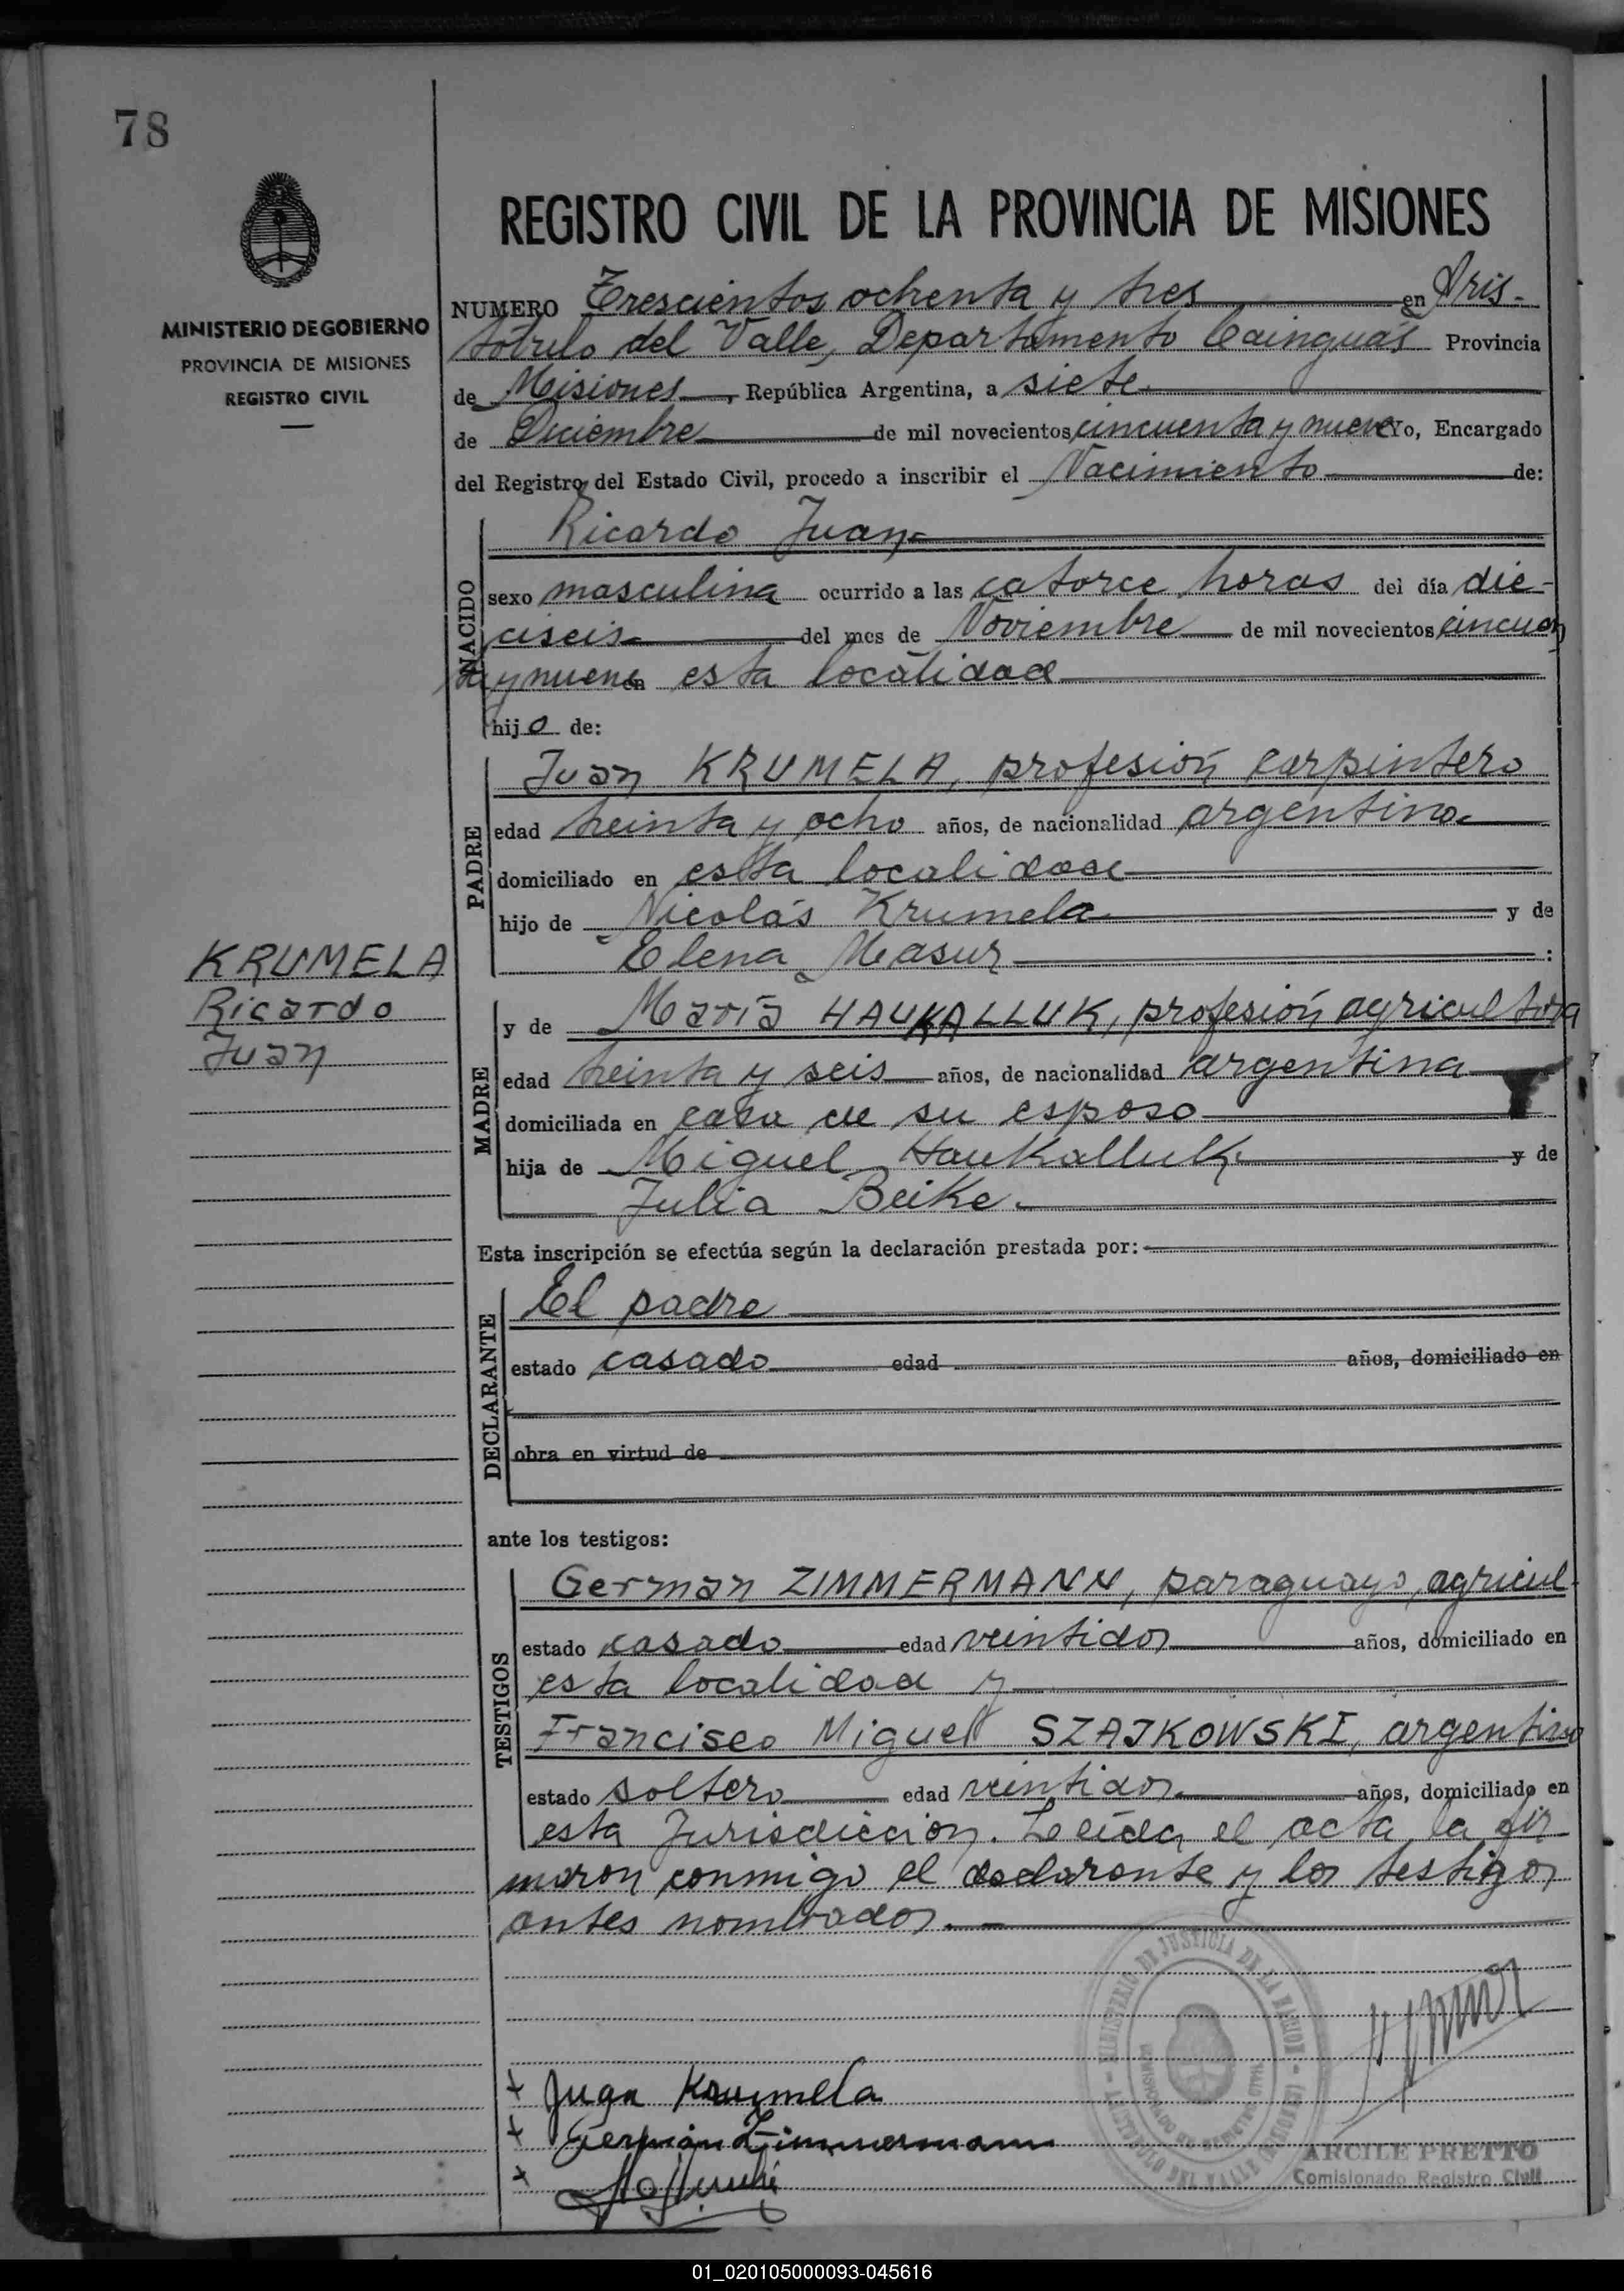 78
MINISTERIO DE GOBIERNO
PROVINCIA DE MISIONES
REGISTRO CIVIL
KRUMELA
Ricardo
Juan
REGISTRO CIVIL DE LA PROVINCIA DE MISIONES
NUMERO Trescientos ochenta y tres en Aris-
tóbulo del Valle, Departamento Cainguás Provincia
de Misiones, República Argentina, a siete
de Diciembre de mil novecientos cincuenta y nueve Yo, Encargado
del Registro del Estado Civil, procedo a inscribir el Nacimiento de:
NACIDO
Ricardo Juan
sexo masculino ocurrido a las catorce horas del día die-
ciseis del mes de Noviembre de mil novecientos cincuen
ta y nueve en esta localidad
hijo de:
PADRE
Juan KRUMELA, profesión carpintero
edad treinta y ocho años, de nacionalidad argentino
domiciliado en esta localidad
hijo de Nicolás Krumela y de
Elena Masur :
MADRE
y de María HAUKALLUK, profesión agricultora
edad treinta y seis años, de nacionalidad argentina
domiciliada en casa de su esposo
hija de Miguel Haukalluk y de
Julia Beike.
Esta inscripción se efectúa según la declaración prestada por:
DECLARANTE
El padre
estado casado edad años, domiciliado en
obra en virtud de
ante los testigos:
TESTIGOS
German ZIMMERMANN, paraguayo, agricul-
estado casado edad veintidos años, domiciliado en
esta localidad y
Francisco Miguel SZAJKOWSKI, argentino
estado soltero edad veintidos años, domiciliado en
esta Jurisdicción. Leída el acta, la fir
maron conmigo el declarante y los testigos
antes nombrados.
MINISTERIO DE JUSTICIA DE LA NACION
ARISTOBULO DEL VALLE (MISIONES)
+ Juan Krumela
+ Germán Zimmermann
+
ARCILE PRETTO
Comisionado Registro Civil
01_020105000093-045616